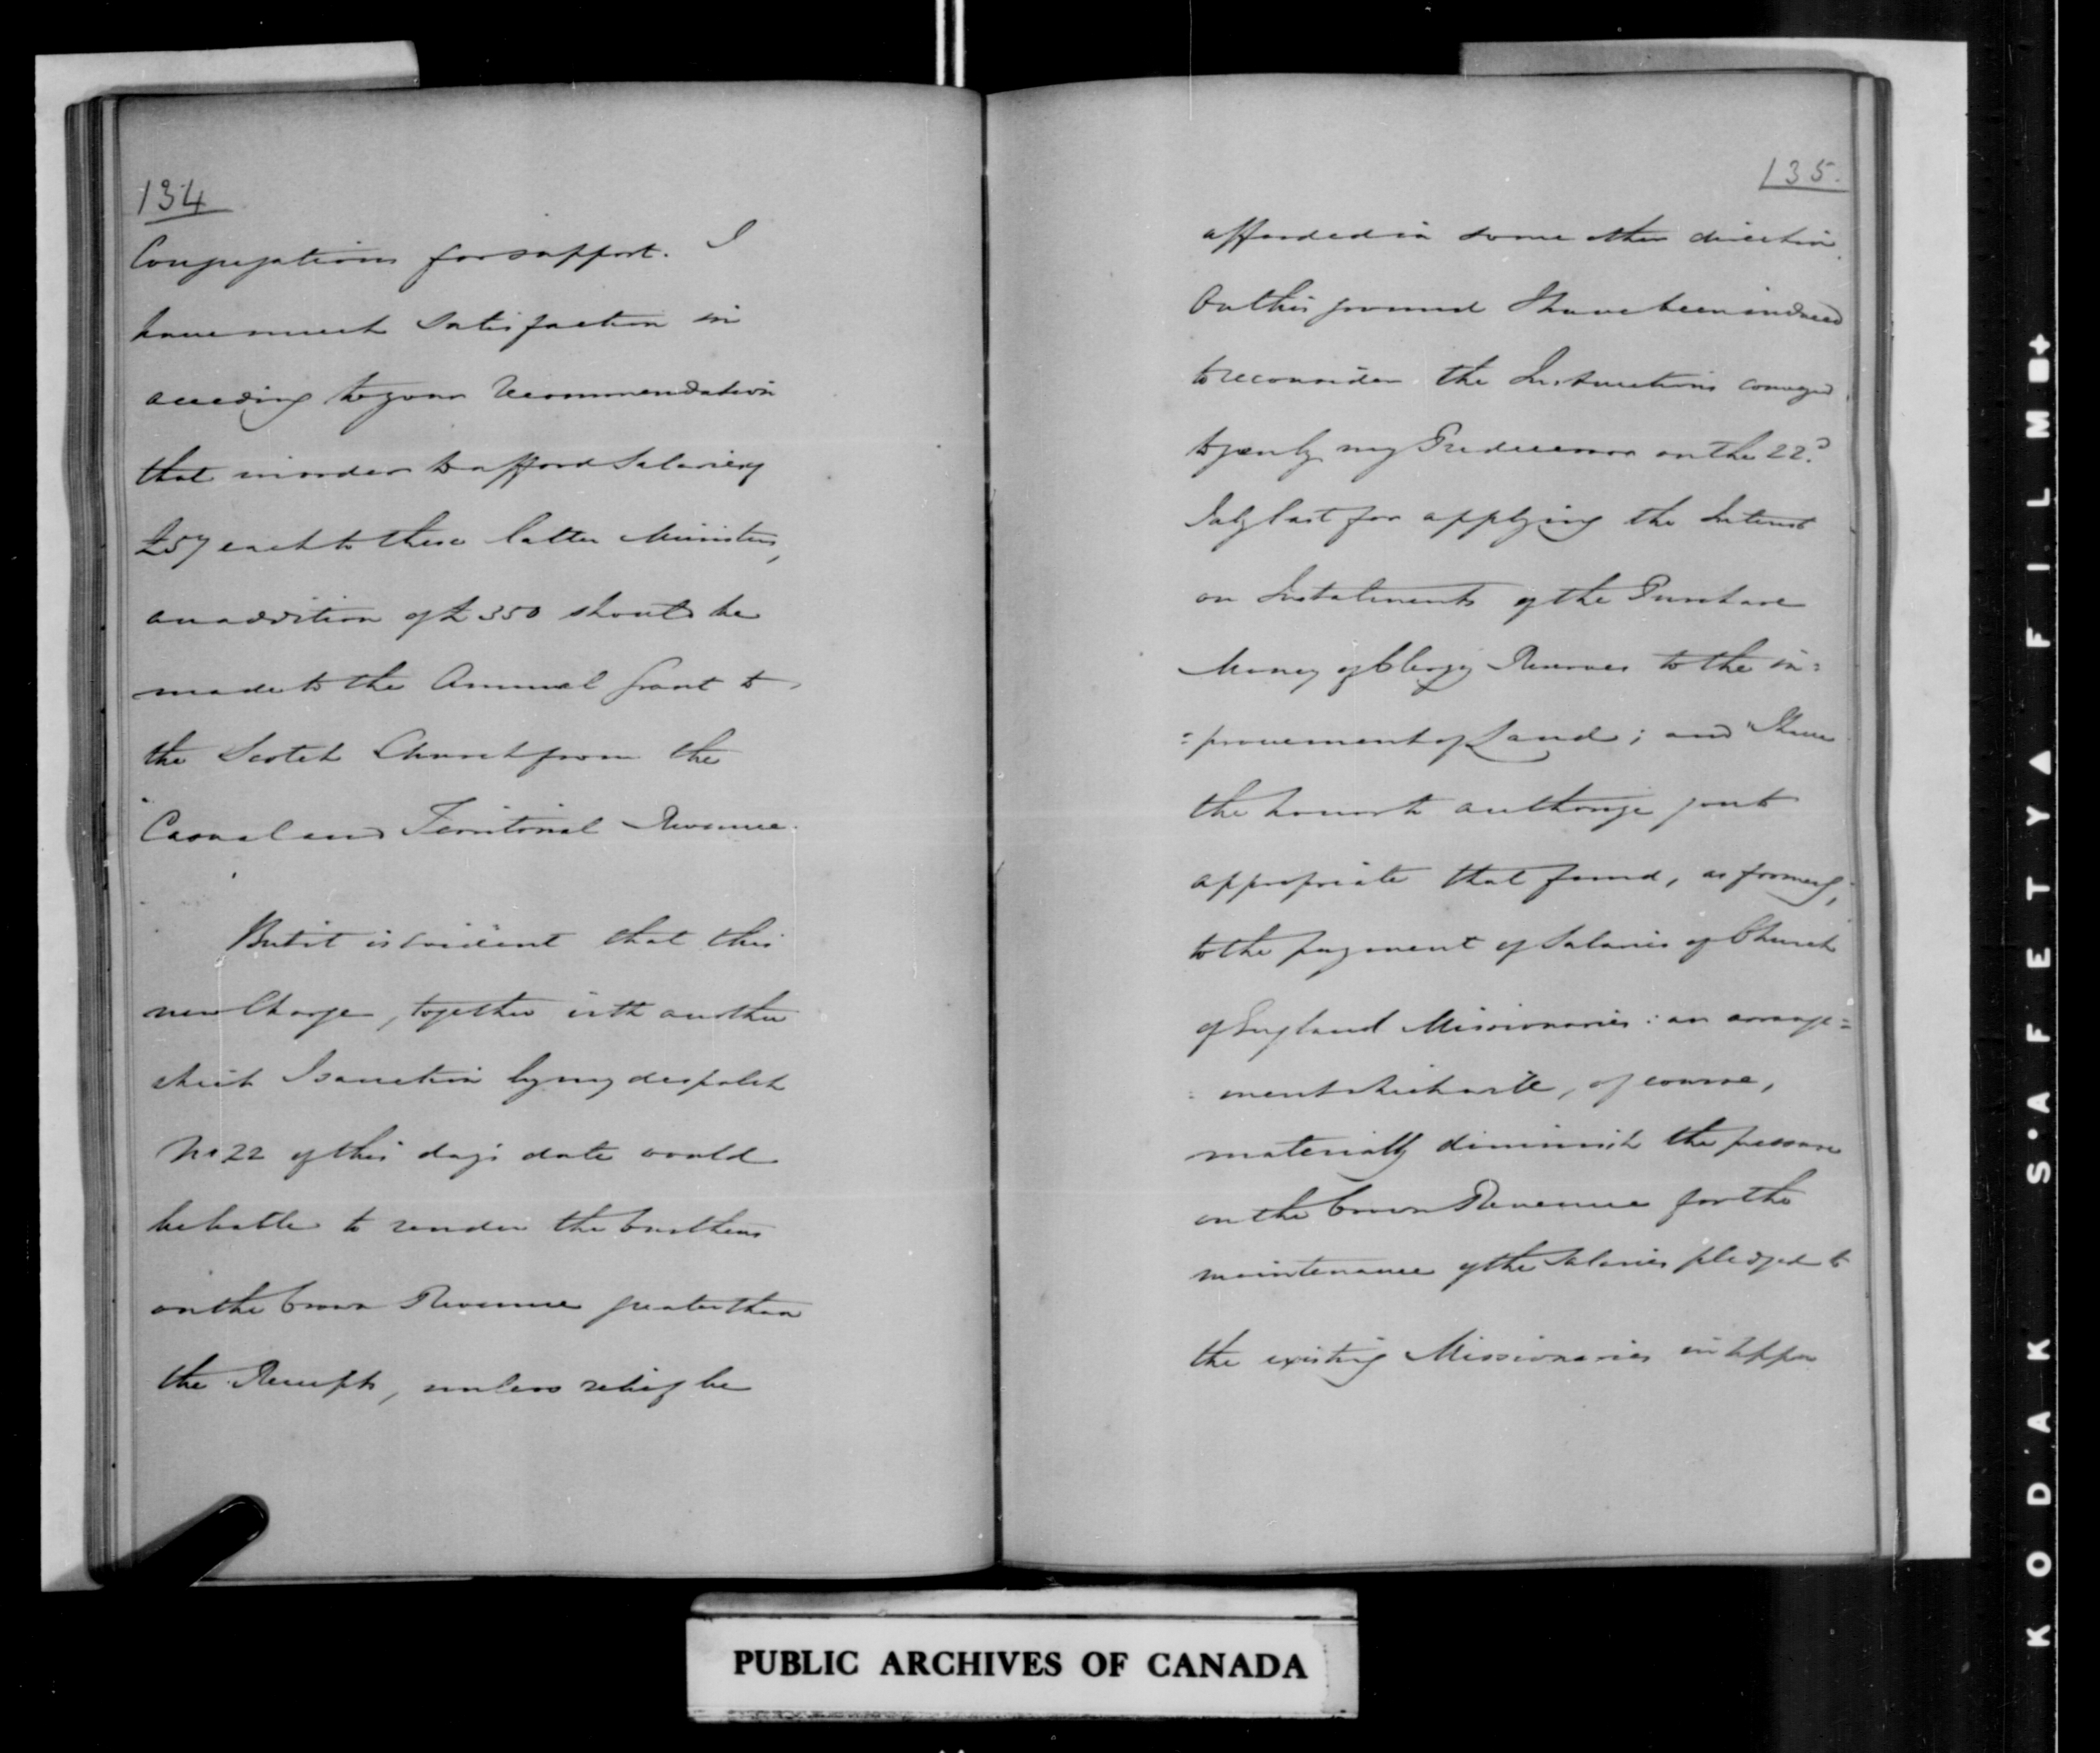 134
Congregations for support. I
have much satisfaction in
acceding to your recommendation
that in order to afford Salaries of
£57 each to these latter Ministers,
an addition of £350 should be
made to the Annual Grant to
the Scotch Church from the
Casual and Territorial Revenue.
But it is evident that this
new Charge, together with another
which I sanction by my despatch
No 22 of this day's date would
be liable to render the burthens
on the Crown Revenue greater than
the Receipts, unless relief be
135.
afforded in some other direction.
On this ground I have been induced
to reconsider the Instructions conveyed
to you by my Predecessor on the 22d
July last for applying the Interest
on Instalments of the Purchase
Money of Clergy Reserves to the im=
=provement of Land; and I have
the honor to authorize you to
appropriate that fund, as formerly,
to the payment of Salaries of Church
of England Missionaries: an arrange=
=ment which will, of course,
materially diminish the pressure
on the Crown Revenue for the
maintenance of the Salaries pledged to
the existing Missionaries in Upper
PUBLIC ARCHIVES OF CANADA
KODAK S·AFETY▲FILM■◆